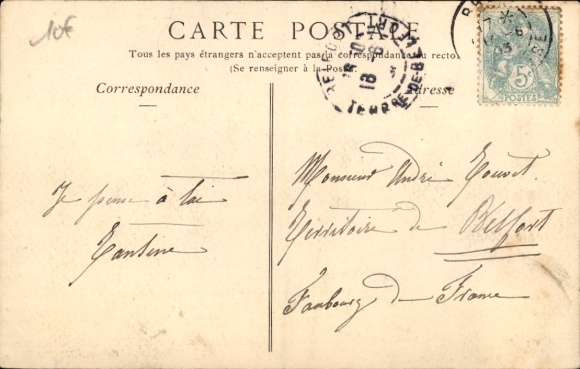 10€
CARTE POSTALE
Tous les pays étrangers n'acceptent pas la correspondance au recto
(Se renseigner à la Poste)
Correspondance
Adresse
5c
POSTES
BELFORT
TERRRE-DE-BELFORT
18
Je pense à toi
Tantine
Monsieur André Touvet
Territoire de Belfort
Faubourg de France